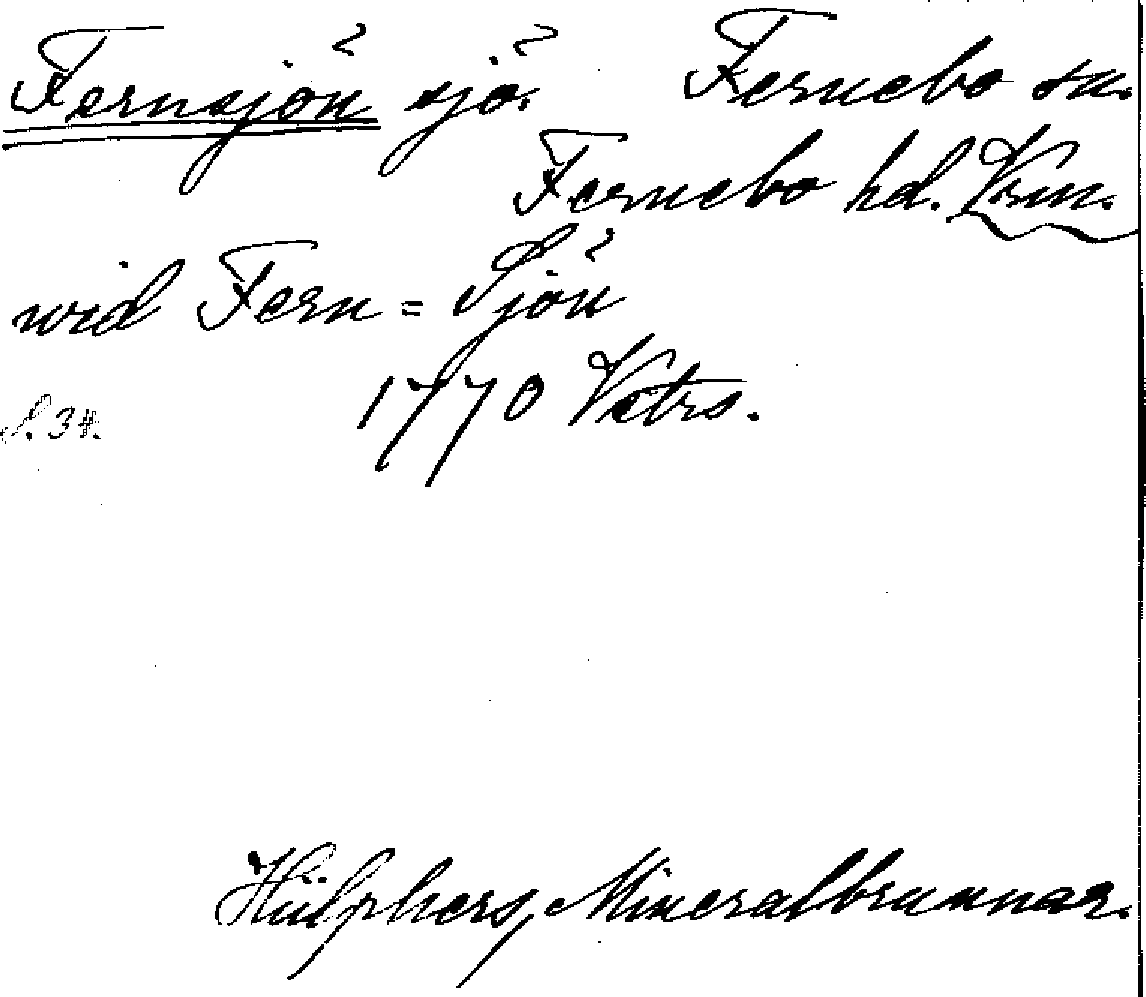 Fernsjön sjö. Fernebo sn.
Fernebo hd. Vrm.
wid Fern=Sjön
1770 Vetrs.
S. 34.
Hülphers, Mineralbrunnar.